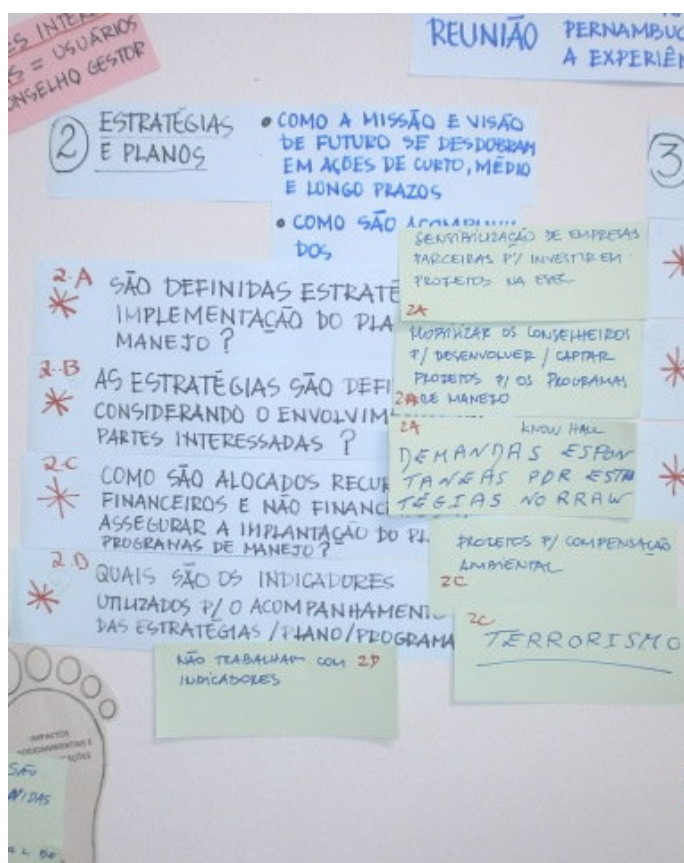 ES INTER
S = USUÁRIOS
ONSELHO GESTOR
REUNIÃO
PERNAMBUC
A EXPERIÊN
2
ESTRATÉGIAS
E PLANOS
• COMO A MISSÃO E VISÃO
DE FUTURO SE DESDOBRAM
EM AÇÕES DE CURTO, MÉDIO
E LONGO PRAZOS
• COMO SÃO
DOS
2-A
SÃO DEFINIDAS ESTRATÉ
IMPLEMENTAÇÃO DO PLA
MANEJO ?
2-B
AS ESTRATÉGIAS SÃO DEFI
CONSIDERANDO O ENVOLVIM
PARTES INTERESSADAS ?
2.C
COMO SÃO ALOCADOS RECUR
FINANCEIROS E NÃO FINANC
ASSEGURAR A IMPLANTAÇÃO DO PL
PROGRAMAS DE MANEJO ?
2.D
QUAIS SÃO OS INDICADORES
UTILIZADOS P/ O ACOMPANHAMENT
DAS ESTRATÉGIAS / PLANO / PROGRAMA
SENSIBILIZAÇÃO DE EMPRESAS
PARCEIRAS P/ INVESTIR EM
PROJETOS NA ESEC
2A
MOBILIZAR OS CONSELHEIROS
P/ DESENVOLVER / CAPTAR
PROJETOS P/ OS PROGRAMAS
2A DE MANEJO
2A KNOW HALL
DEMANDAS ESPON
TANEAS POR ESTRA
TÉGIAS NO RRAW
PROJETOS P/ COMPENSAÇÃO
AMBIENTAL
2C
2C
TERRORISMO
NÃO TRABALHAM COM 2D
INDICADORES
3
IMPACTOS
SOCIOAMBIENTAIS E
SÃO
NIDAS